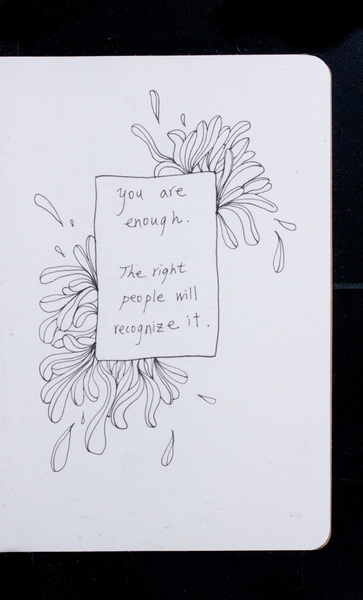 you are
enough.
The right
people will
recognize it.